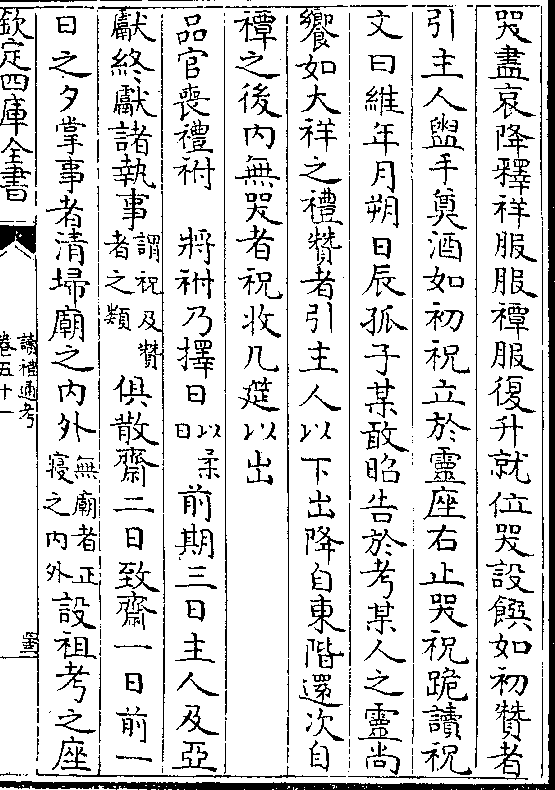 哭盡哀降釋祥服服禫服復升就位哭設饌如初贊者
引主人盥手奠酒如初祝立於靈座右止哭祝跪讀祝
文曰維年月朔日辰孤子某敢昭告於考某人之靈尚
饗如大祥之禮贊者引主人以下出降自東階還次自
禫之後内無哭者祝收几筵以出
品官喪禮祔 將祔乃擇日以柔日前期三日主人及亞
獻終獻諸執事謂祝及贊者之類俱散齋二日致齋一日前一
日之夕掌事者清埽廟之内外無廟者正寢之内外設祖考之座
欽定四庫全書
讀禮通考
卷五十一